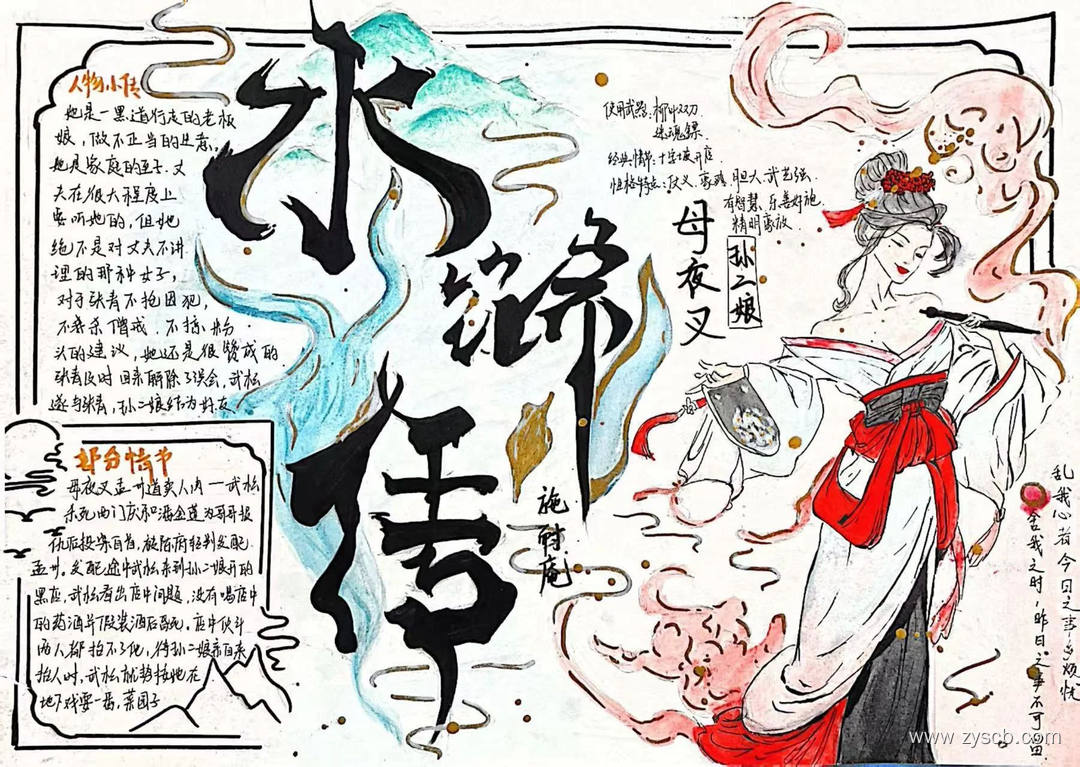 水浒传
施耐庵
人物小传
她是一黑道行走的老板
娘，做不正当的生意，
她是家庭的主子，丈
夫在很大程度上
要听她的，但她
绝不是对丈夫不讲
理的那种女子，
对于张青不抢囚犯，
不杀僧戒，不抢
头的建议，她还是很赞成的
张青及时回来解除了误会，武松
遂与张青，孙二娘结为好友
部分情节
母夜叉孟州道卖人肉——武松
杀死西门庆和潘金莲为哥哥报
仇后投案自首，被陈府轻判发配
孟州。发配途中武松来到孙二娘开的
黑店，武松看出店中问题，没有喝店中
的药酒并假装酒后昏死，店中伙计
两人都抬不了他，待孙二娘亲自来
抬人时，武松就势按她在
地下戏耍一番，菜园子
使用武器：柳叶双刀
经典情节：十字坡开店
性格特点：仗义、豪爽、胆大、武艺强、
有智慧、乐善好施、
精明豪放
母夜叉
孙二娘
乱我心者今日之事多烦忧
舍我之时，昨日之事不可留
www.zyscb.com